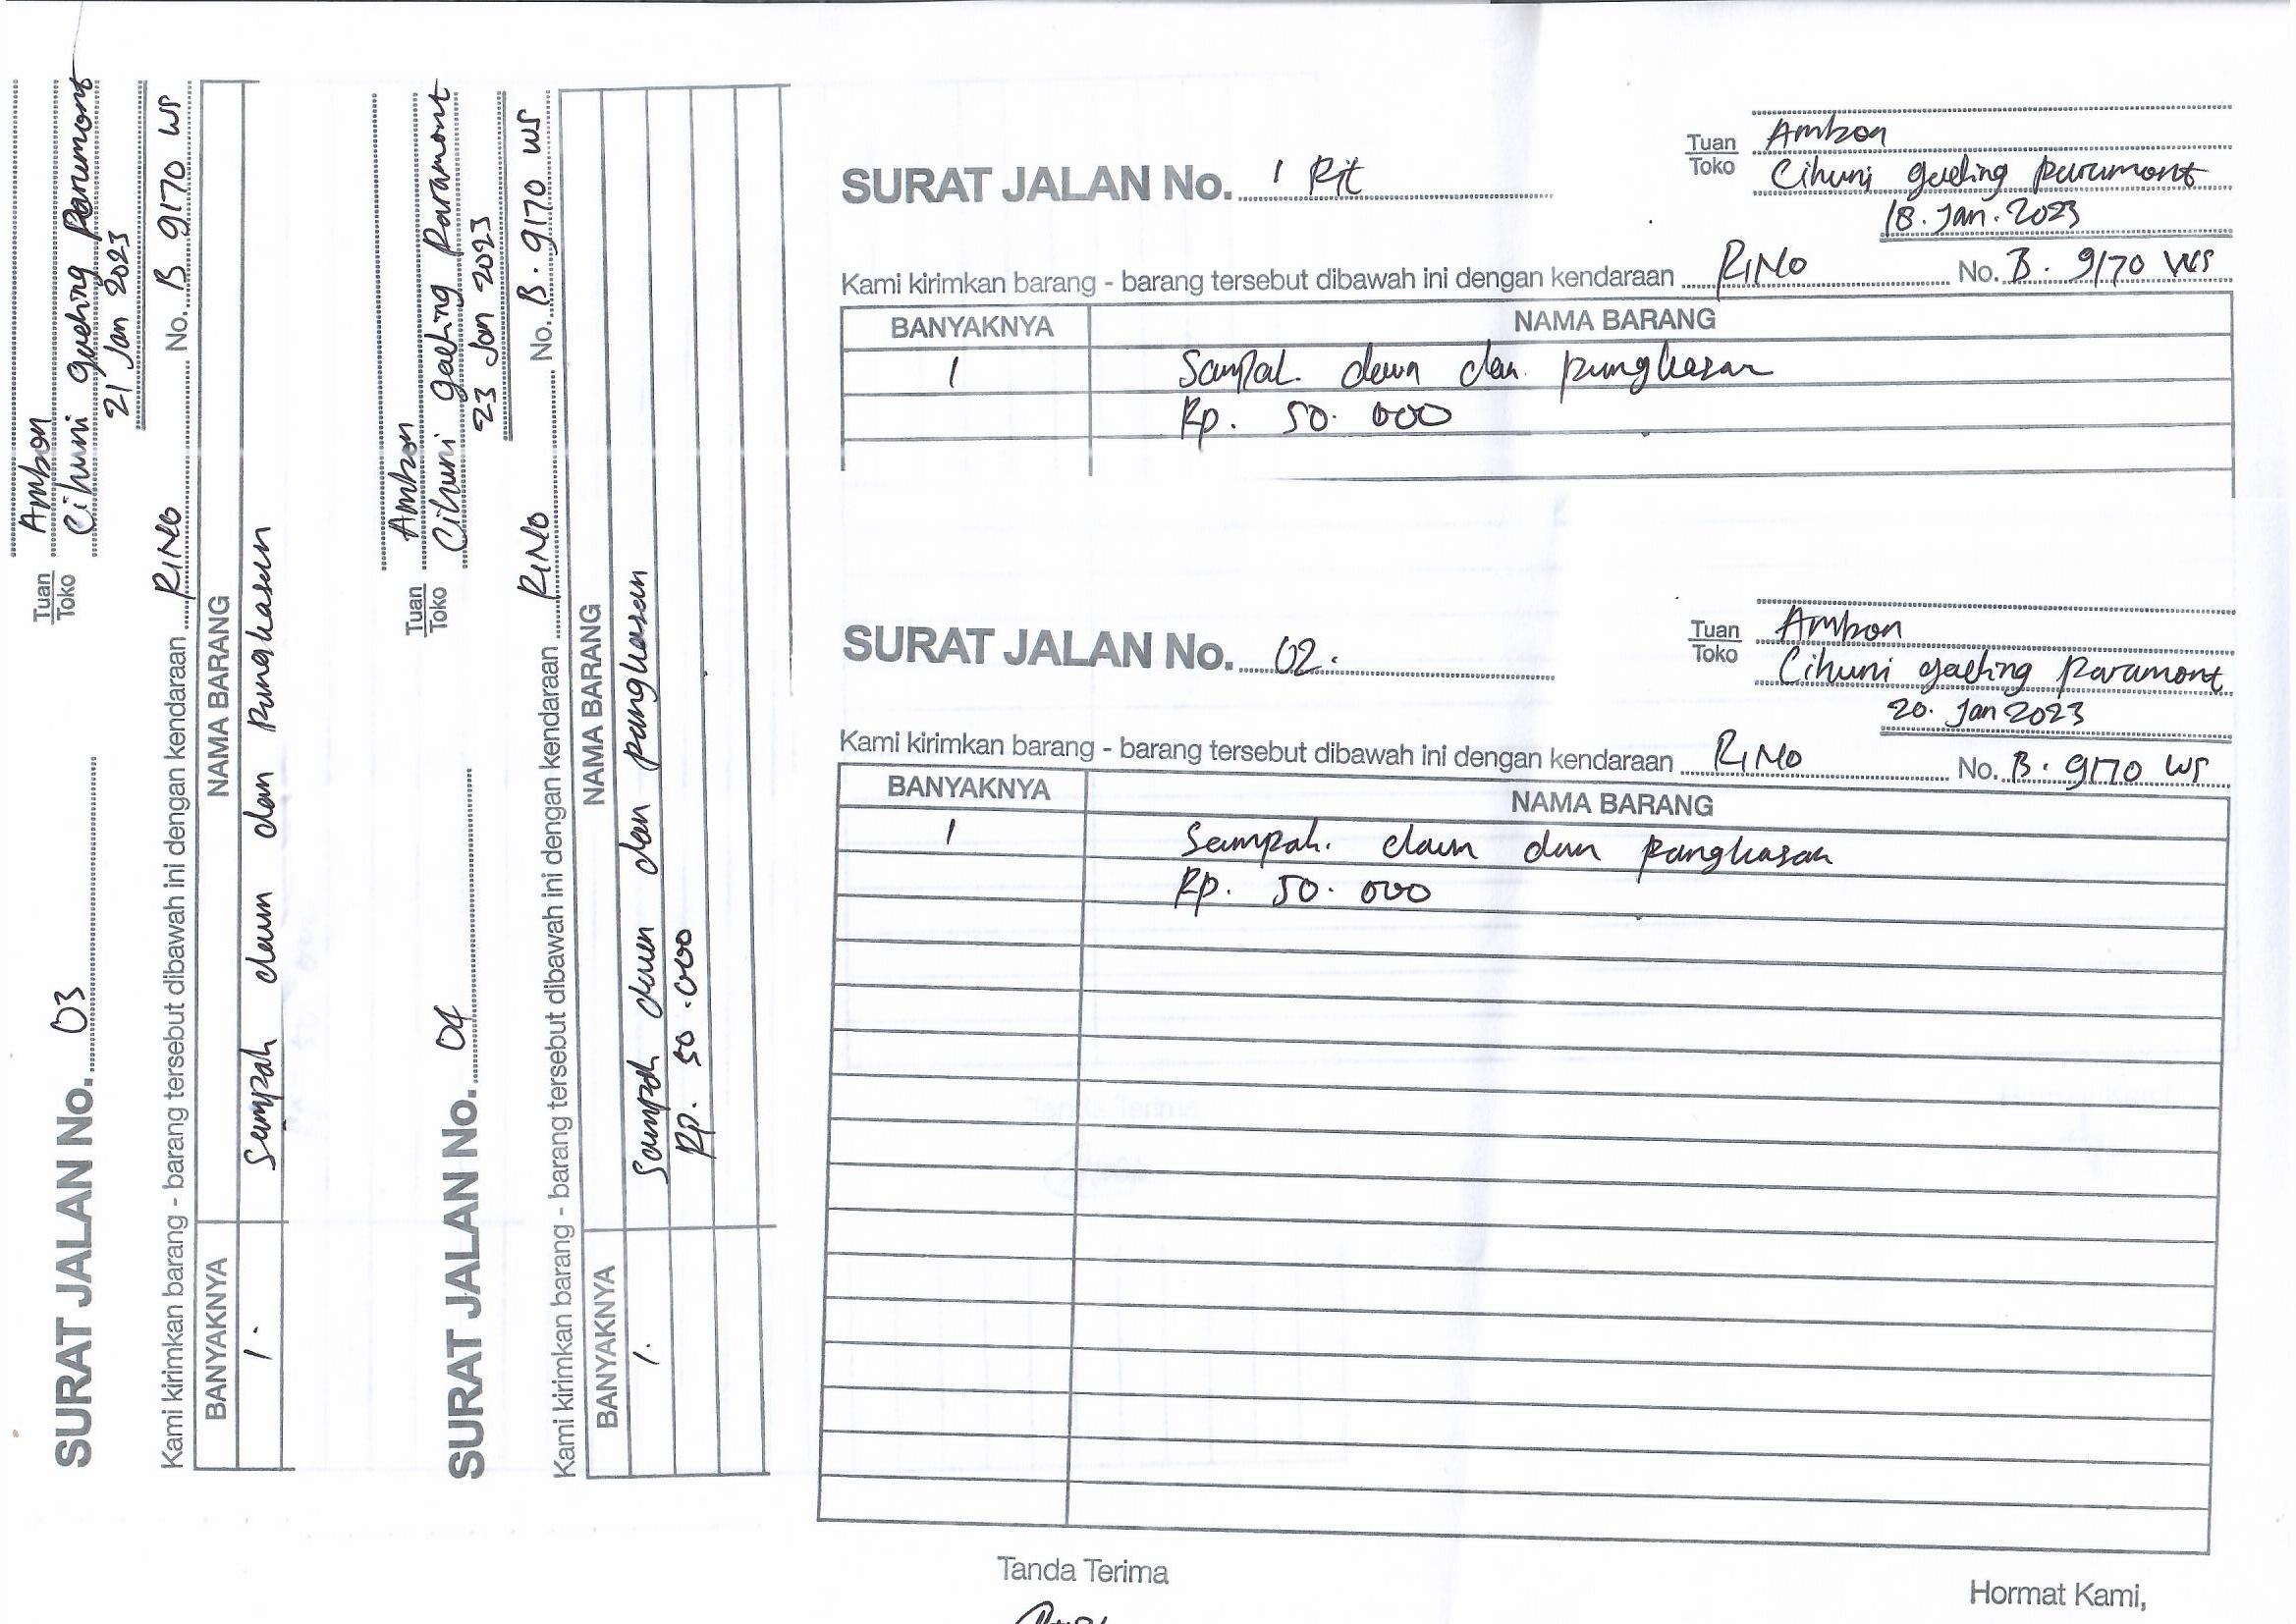 SURAT JALAN No. 1 Rit
Tuan
Toko
Ambon
Cihuni gading paramont
18. Jan. 2023
Kami kirimkan barang - barang tersebut dibawah ini dengan kendaraan RINO No. B. 9170 WS
BANYAKNYA NAMA BARANG
1 Sampah. daun dan pangkasan
Rp. 50. 000
SURAT JALAN No. 02.
Tuan
Toko
Ambon
Cihuni gading paramont
20. Jan 2023
Kami kirimkan barang - barang tersebut dibawah ini dengan kendaraan RINO No. B. 9170 WS
BANYAKNYA NAMA BARANG
1 Sampah. daun dan pangkasan
Rp. 50. 000
Tanda Terima
Hormat Kami,
SURAT JALAN No. 03
Tuan
Toko
Ambon
Cihuni gading Paramont
21 Jan 2023
Kami kirimkan barang - barang tersebut dibawah ini dengan kendaraan RINO No. B 9170 WS
BANYAKNYA NAMA BARANG
1. Sampah daun dan pangkasan
SURAT JALAN No. 04
Tuan
Toko
Ambon
Cihuni gading Paramont
23 Jan 2023
Kami kirimkan barang - barang tersebut dibawah ini dengan kendaraan RINO No. B. 9170 WS
BANYAKNYA NAMA BARANG
1. Sampah daun dan pangkasan
Rp. 50.000